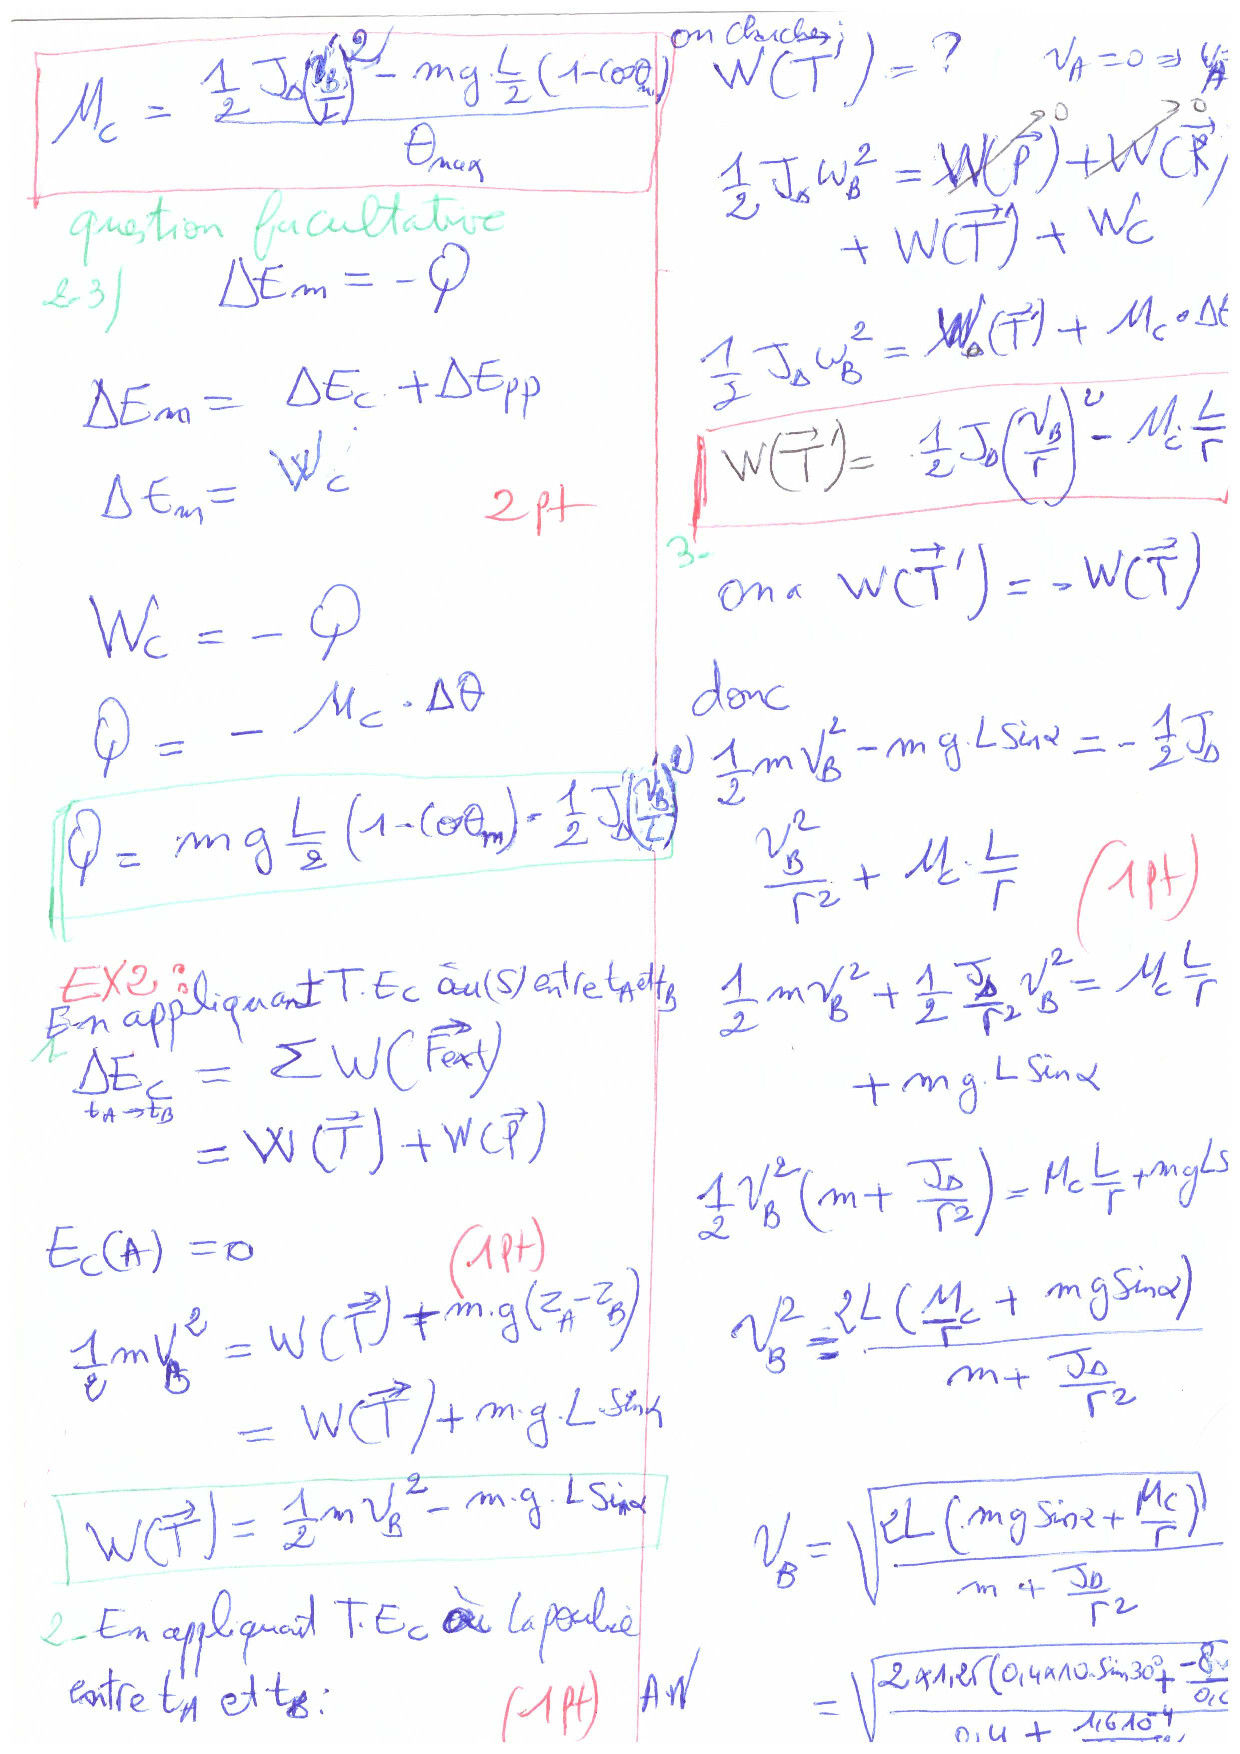 M_c = (1/2 J_Δ (v_B/L)² - mg.L/2 (1-cosθ_m)) / θ_max
question facultative
2-3) ΔEm = -Q
ΔEm = ΔEc + ΔEpp
ΔEm = Wc
2pt
Wc = - Q
Q = - M_c . Δθ
Q = mg L/2 (1-cosθ_m) - 1/2 J_Δ (v_B/L)²
EX2 :
En appliquant T.Ec àu (S) entre t_A et t_B
1- ΔEc = Σ W(Fext)
t_A → t_B
= W(T) + W(P)
Ec(A) = 0
(1pt)
1/2 m V_B² = W(T) + m.g(z_A - z_B)
= W(T) + m.g.L.Sinα
W(T) = 1/2 m V_B² - m.g.L Sinα
2- En appliquant T.Ec à la poulie
entre t_A et t_B :
(1pt)
on cherche ;
W(T') = ? v_A = 0 ⇒
1/2 J_Δ ω_B² = W(P) →0 + W(R) →0
+ W(T') + Wc
1/2 J_Δ ω_B² = W(T') + M_c . Δ
W(T') = 1/2 J_Δ (v_B/r)² - M_c . L/r
3-
on a W(T') = - W(T)
donc
1/2 m V_B² - m g.L Sinα = - 1/2 J_Δ
v_B²/r² + M_c . L/r
(1pt)
1/2 m v_B² + 1/2 J_Δ/r² v_B² = M_c L/r
+ m g.L Sinα
1/2 V_B² (m + J_Δ/r²) = M_c L/r + mgLS
V_B² = 2L (M_c/r + m g Sinα) / (m + J_Δ/r²)
V_B = √(2L (m g Sinα + M_c/r) / (m + J_Δ/r²))
A.N = √(2×1,25 (0,4×10.Sin30° + -8 / 0,4 + 1,6 10⁻⁴